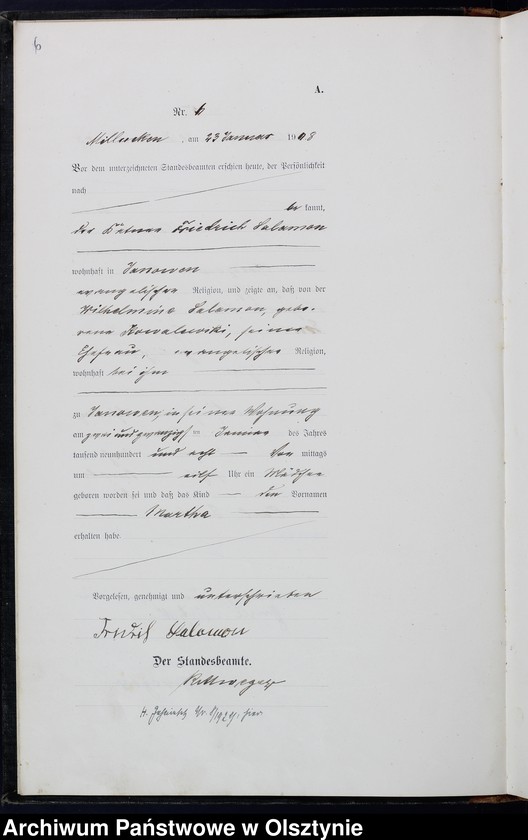 6
A.
Nr. 6
Millewken, am 23 Januar 1908
Vor dem unterzeichneten Standesbeamten erschien heute, der Persönlichkeit
nach
bekannt,
der Kätner Friedrich Salamon
wohnhaft in Janowen
evangelischer Religion, und zeigte an, daß von der
Wilhelmine Salamon, gebo-
rene Kowalewski, seiner
Ehefrau, evangelischer Religion,
wohnhaft bei ihm
zu Janowen, in seiner Wohnung
am zwei und zwanzigsten Januar des Jahres
tausend neunhundert und acht Vormittags
um elf Uhr ein Mädchen
geboren worden sei und daß das Kind den Vornamen
Martha
erhalten habe.
Vorgelesen, genehmigt und unterschrieben
Fridrich Salomon
Der Standesbeamte.
H. Nr. 8/1929. hier
Archiwum Państwowe w Olsztynie